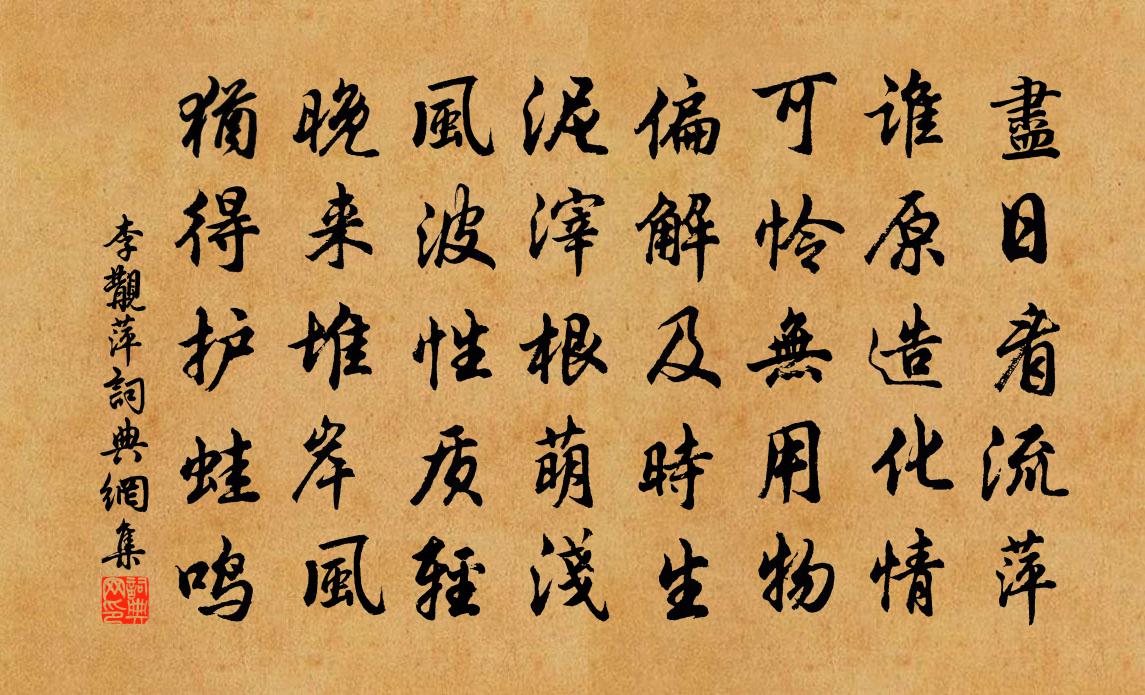 盡日看流萍
谁原造化情
可怜無用物
偏解及時生
泥滓根萌淺
風波性质輕
晚来堆岸風
猶得护蛙鸣
李覯萍詞典網集
詞典网印